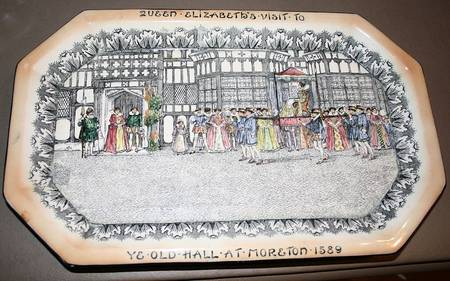 QUEEN · ELIZABETH'S · VISIT · TO
YE · OLD · HALL · AT · MORETON · 1589